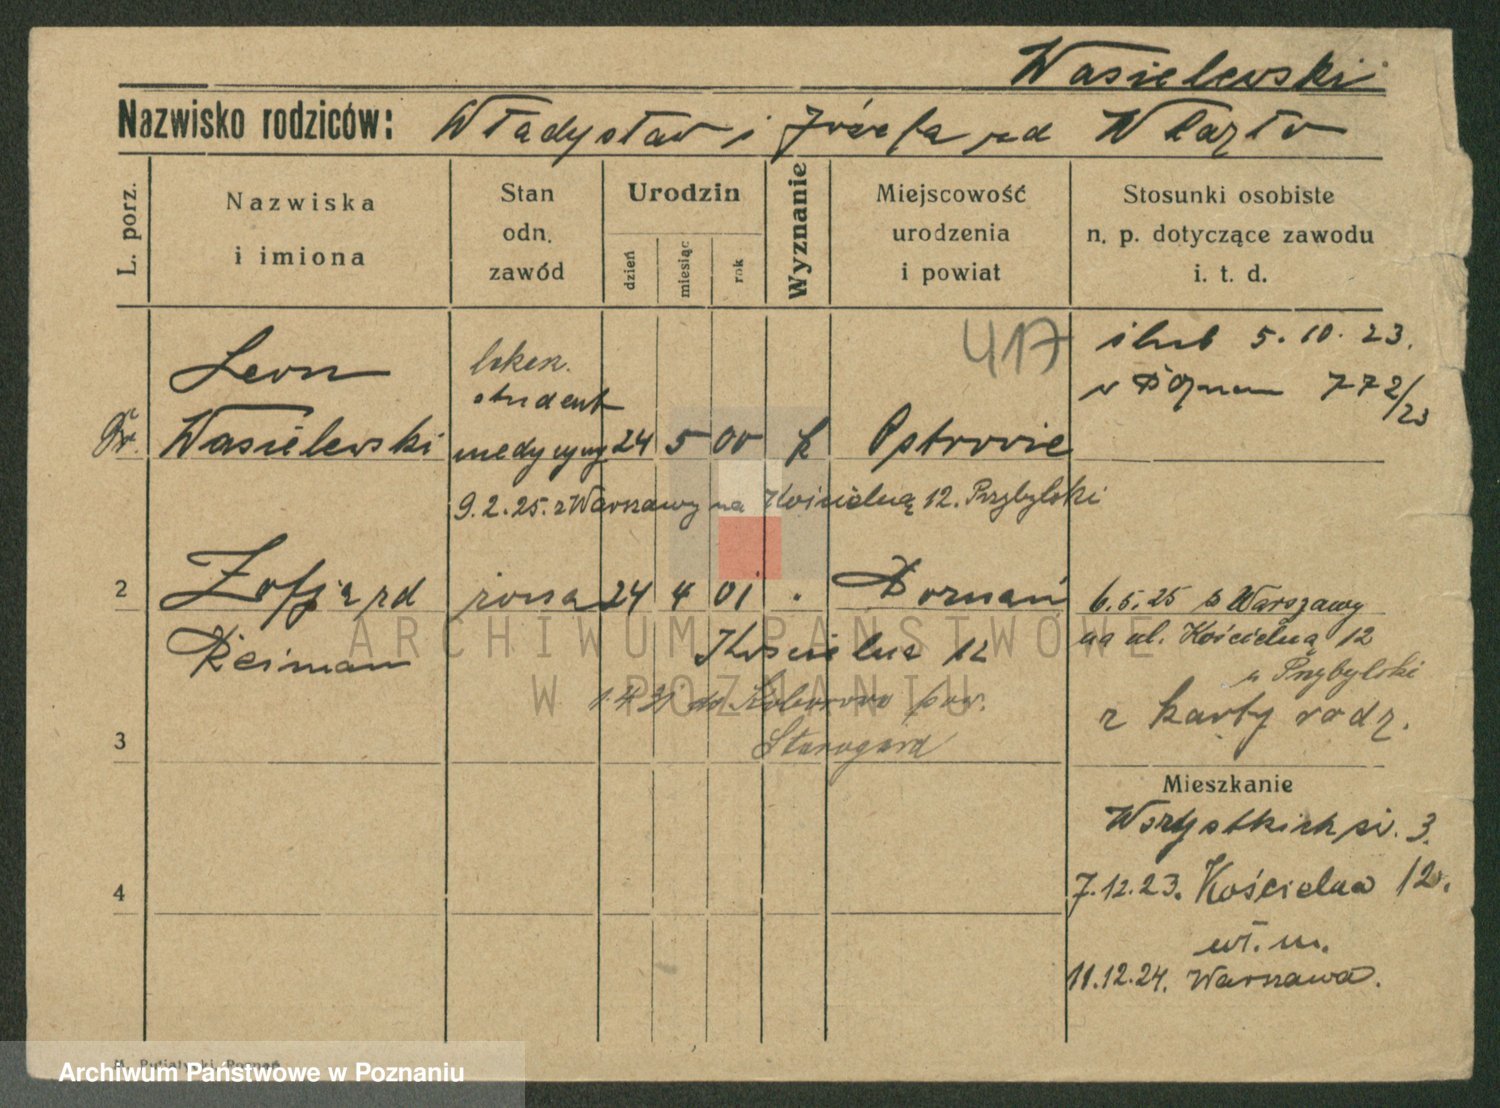 Wasielewski
Nazwisko rodziców: Władysław i Józefa rd
L. porz.
Nazwiska i imiona
Stan odn. zawód
Urodzin
dzień
miesiąc
rok
Wyznanie
Miejscowość urodzenia i powiat
Stosunki osobiste n. p. dotyczące zawodu i. t. d.
417
ślub 5. 10. 23.
w Poznan 772/23
Leon
lekarz
student
Dr. Wasielewski medycyny 24 5 00 k Ostrowie
9.2.25. z Warszawy na Kościelną 12. Przybylski
2 Zofja rd żona 24 4 01 . Poznań
6.5.25 z Warszawy
Reiman Kościelna 12
na ul. Kościelną 12
u Przybylski
do Koborowo pow.
z karty rodz.
3 Starogard
Mieszkanie
Wszystkich św. 3.
4
7.12.23. Kościelna 12.
wł. m.
11.12.24. Warszawa.
ARCHIWUM PAŃSTWOWE
W POZNANIU
Archiwum Państwowe w Poznaniu